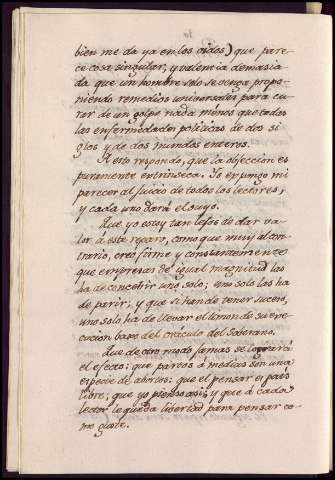 bien me da ya en los oidos) que pare-
ce cosa singular, y valentia demasia-
da que un hombre solo se venga propo-
niendo remedios universales para cu-
rar de un golpe nada menos que todas
las enfermedades politicas de dos si-
glos y de dos mundos enteros.
A esto respondo, que la objeccion es
puramente extrinseca. Yo expongo mi
parecer al juicio de todos los lectores,
y cada uno dará el suyo.
Que yo estoy tan lejos de dar va-
lor á este reparo, como que muy al con-
trario, creo firme y constantemente
que empresas de igual magnitud las
ha de concebir uno solo; uno solo las ha
de parir; y que si han de tener suceso,
uno solo ha de llevar el timon de su exe-
cucion baxo del oráculo del Soberano.
Que de otro modo jamas se logrará
el efecto: que partos á medias son una
especie de abortos: que el pensar es pais
libre; que yo pienso asi; y que á cada
lector le queda libertad para pensar co-
mo guste.